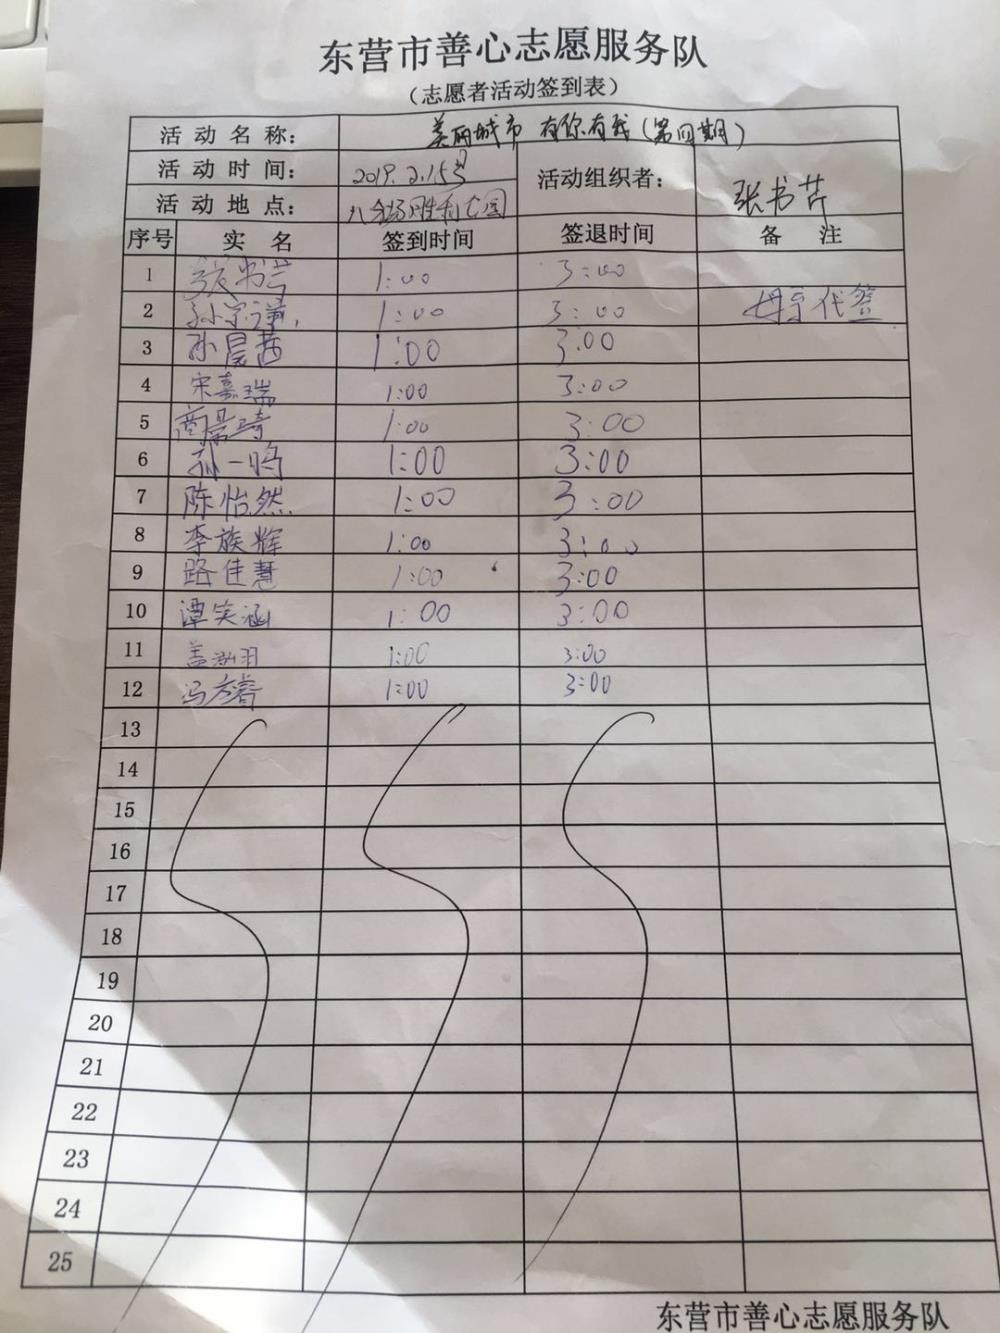 东营市善心志愿服务队
（志愿者活动签到表）
活动名称： 美丽城市 有你有我（第四期）
活动时间： 2019.2.15号 活动组织者： 张书芹
活动地点：
序号 实名 签到时间 签退时间 备注
1 张书芹 1:00 3:00
2 1:00 3:00 母亲代签
3 孙晨茜 1:00 3:00
4 宋嘉瑞 1:00 3:00
5 商景琦 1:00 3:00
6 孙一鸣 1:00 3:00
7 陈怡然 1:00 3:00
8 李族辉 1:00 3:00
9 路佳慧 1:00 3:00
10 谭笑涵 1:00 3:00
11 1:00 3:00
12 冯方睿 1:00 3:00
13
14
15
16
17
18
19
20
21
22
23
24
25
东营市善心志愿服务队